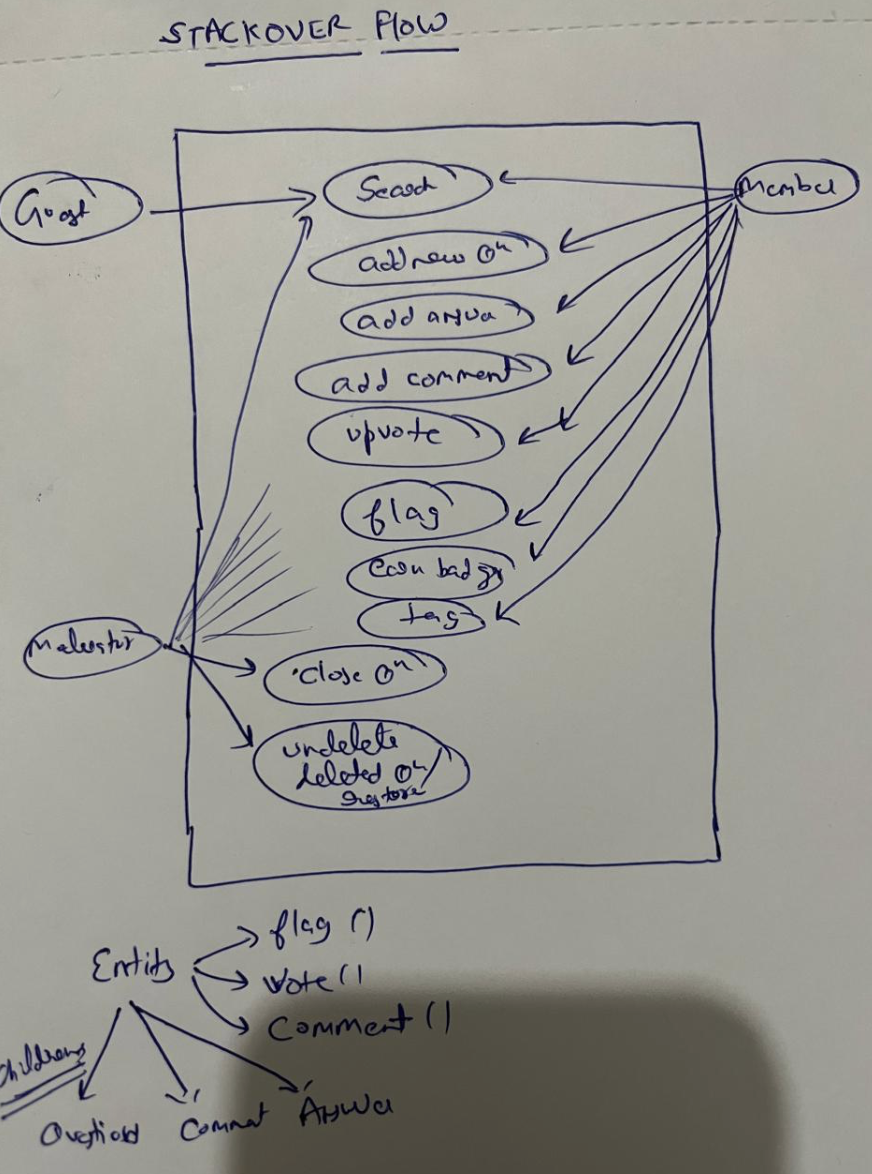 STACKOVER FLOW
Guest
Search
Member
add new Qn
add answer
add comment
upvote
flag
earn badge
tag
Moderator
close Qn
undelete
deleted Qn/
restore
Entity
flag ()
vote ()
Comment ()
Childrens
Question
Comment
Answer